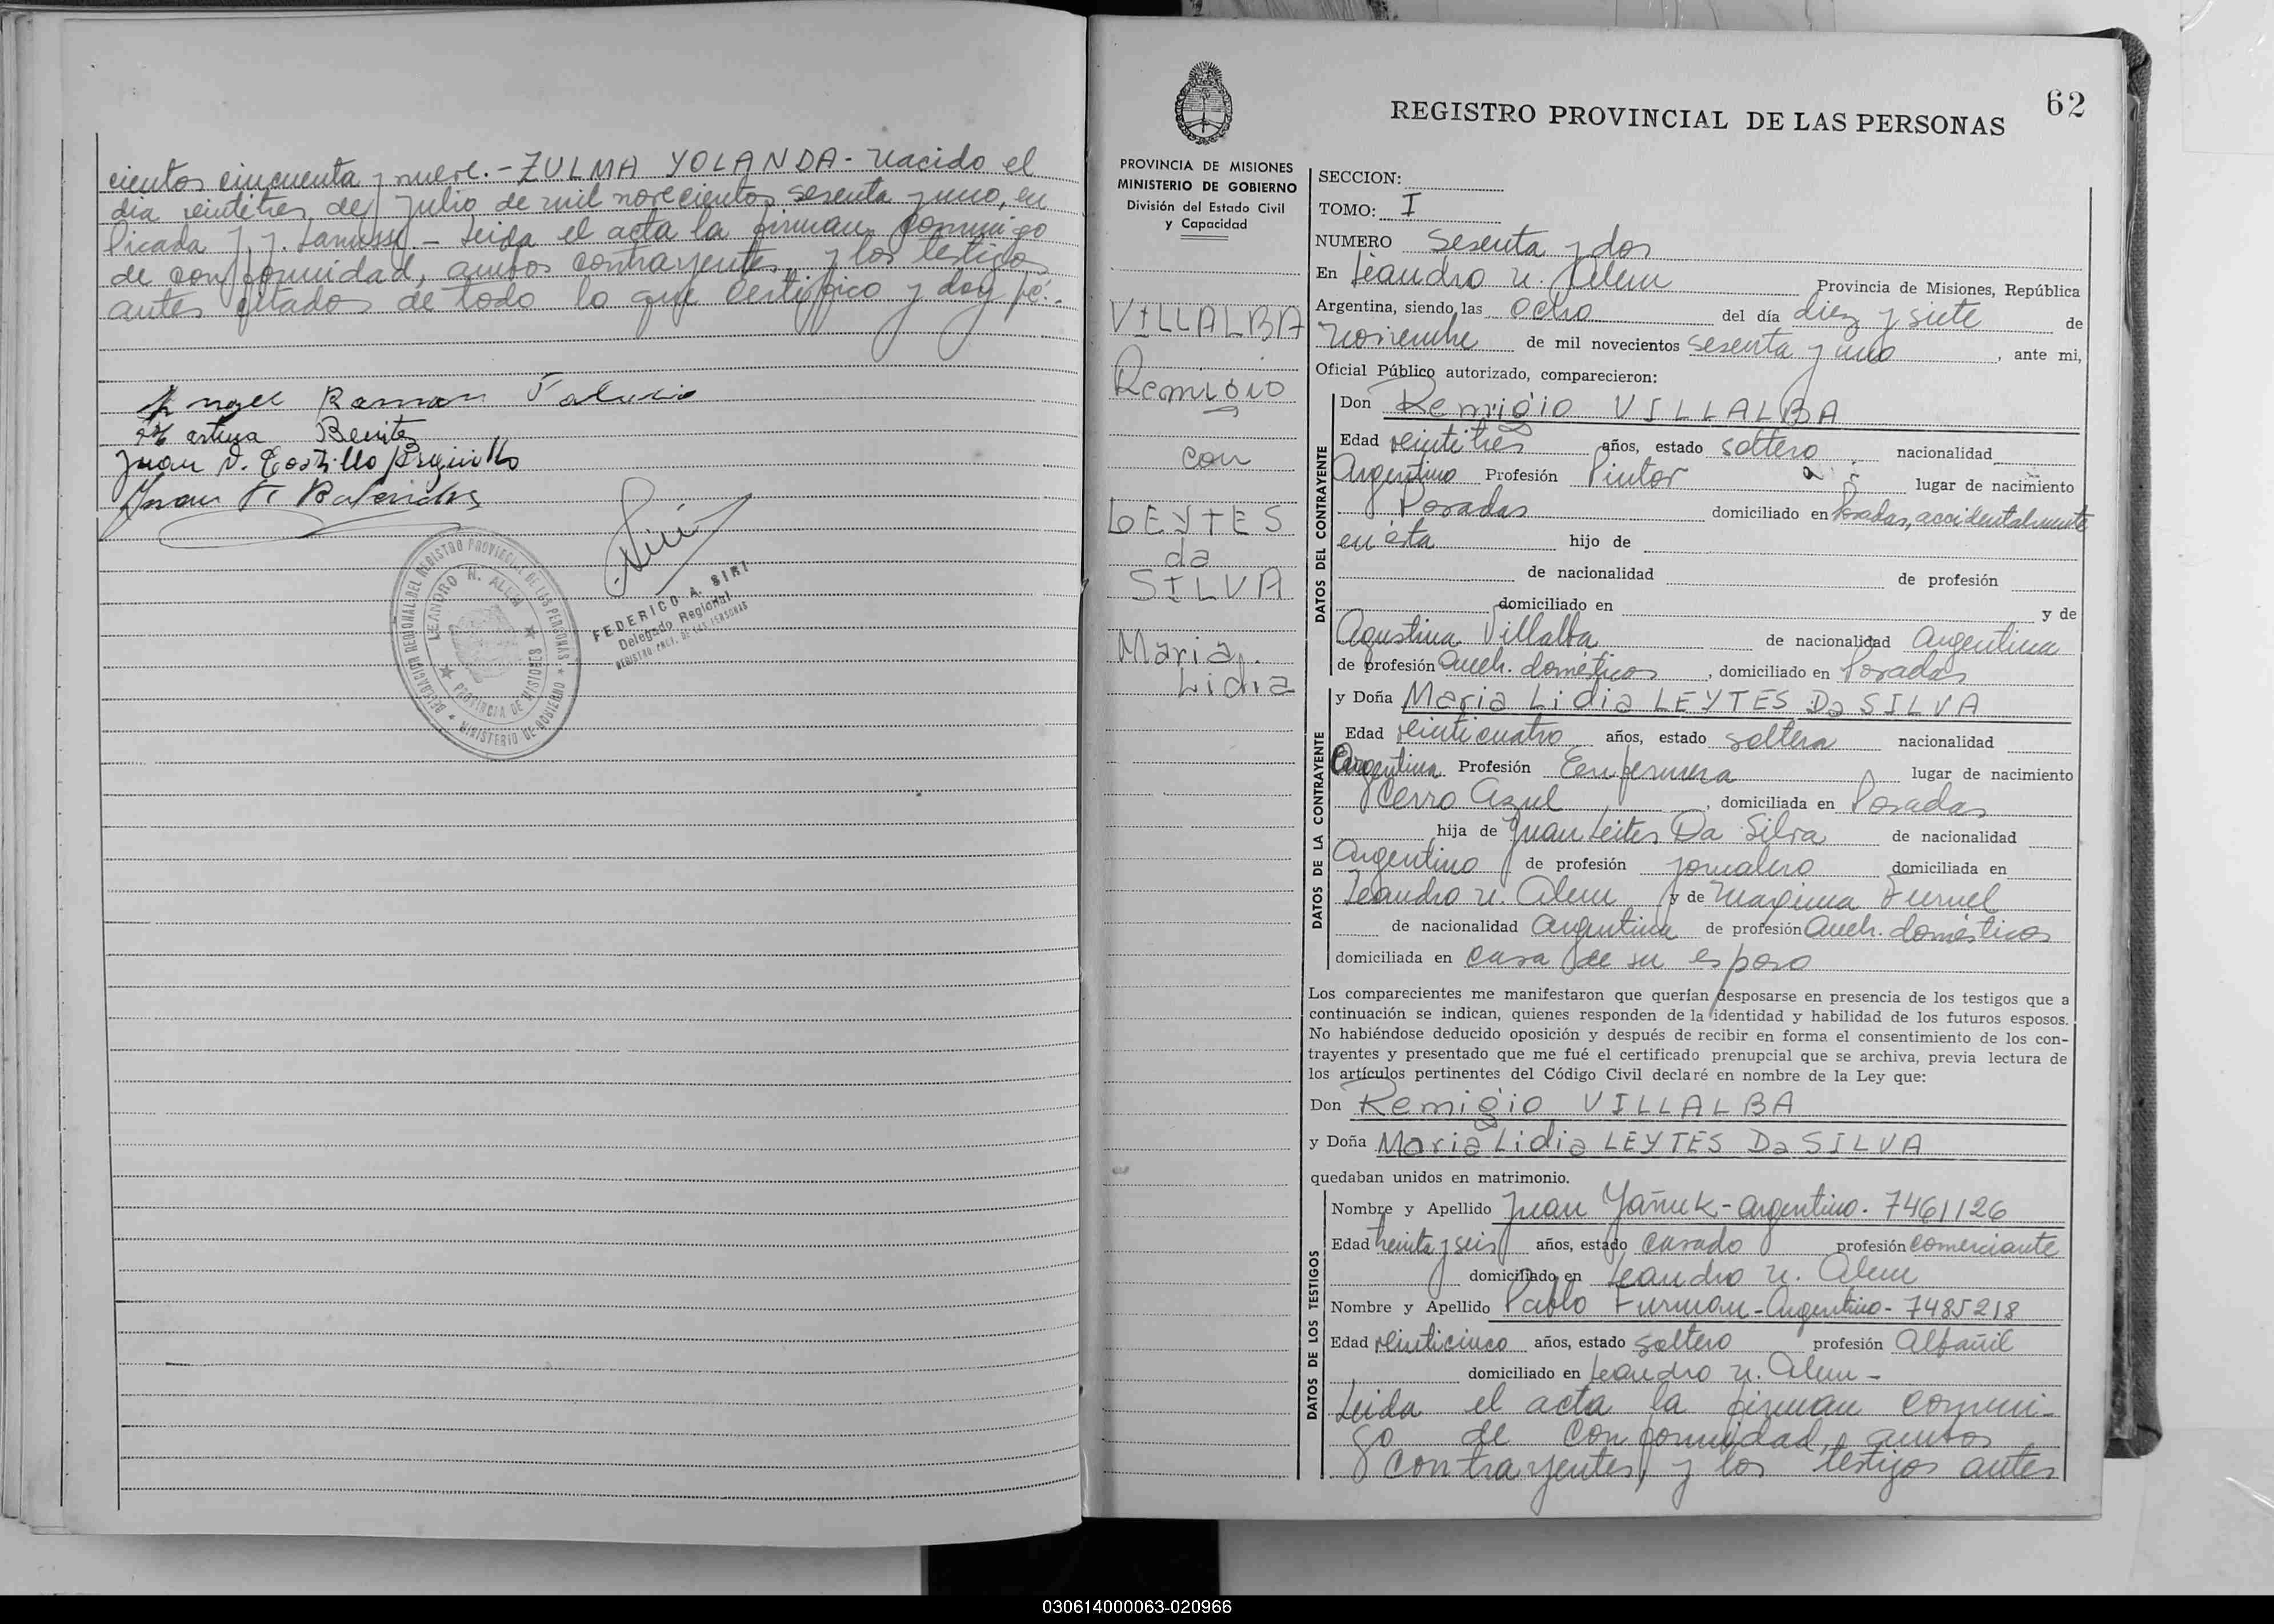 cientos cincuenta y nueve.- ZULMA YOLANDA- nacido el
dia veintitres de Julio de mil novecientos sesenta y uno, en
Picada J. J. Lanusse.- Leida el acta la firman conmigo
de conformidad, ambos contrayentes y los testigos
antes citados de todo lo que certifico y doy fé.-
Angel Ramon
Benitez
Juan
Juan
DELEGACION REGIONAL DEL REGISTRO PROVINCIAL DE LAS PERSONAS
MINISTERIO DE GOBIERNO
LEANDRO N. ALEM
PROVINCIA DE MISIONES
FEDERICO A. SIRI
Delegado Regional
REGISTRO PROV. DE LAS PERSONAS
62
REGISTRO PROVINCIAL DE LAS PERSONAS
PROVINCIA DE MISIONES
MINISTERIO DE GOBIERNO
División del Estado Civil
y Capacidad
VILLALBA
Remigio
con
LEYTES
da
SILVA
Maria
Lidia
SECCION:
TOMO: I
NUMERO Sesenta y dos
En Leandro N. Alem Provincia de Misiones, República
Argentina, siendo las ocho del día diez y siete de
Noviembre de mil novecientos sesenta y uno, ante mi,
Oficial Público autorizado, comparecieron:
DATOS DEL CONTRAYENTE
Don Remigio VILLALBA
Edad veintitres años, estado soltero nacionalidad
Argentino Profesión Pintor lugar de nacimiento
Posadas domiciliado en Posadas, accidentalmente
en ésta hijo de
de nacionalidad de profesión
domiciliado en y de
Agustina Villalba de nacionalidad Argentina
de profesión Queh. domésticos, domiciliado en Posadas
DATOS DE LA CONTRAYENTE
y Doña Maria Lidia LEYTES Da SILVA
Edad veinticuatro años, estado soltera nacionalidad
Argentina Profesión Enfermera lugar de nacimiento
Cerro Azul, domiciliada en Posadas
hija de Juan Leites Da Silva de nacionalidad
Argentino de profesión jornalero domiciliada en
Leandro N. Alem y de Maxima
de nacionalidad Argentina de profesión Queh. domésticos
domiciliada en casa de su esposo
Los comparecientes me manifestaron que querían desposarse en presencia de los testigos que a
continuación se indican, quienes responden de la identidad y habilidad de los futuros esposos.
No habiéndose deducido oposición y después de recibir en forma el consentimiento de los con-
trayentes y presentado que me fué el certificado prenupcial que se archiva, previa lectura de
los artículos pertinentes del Código Civil declaré en nombre de la Ley que:
Don Remigio VILLALBA
y Doña Maria Lidia LEYTES Da SILVA
quedaban unidos en matrimonio.
DATOS DE LOS TESTIGOS
Nombre y Apellido Juan Yañuk- Argentino. 7461126
Edad treinta y seis años, estado casado profesión comerciante
domiciliado en Leandro N. Alem
Nombre y Apellido Pablo Furman- Argentino- 7485218
Edad veinticinco años, estado soltero profesión Albañil
domiciliado en Leandro N. Alem-
Leida el acta la firman conmi-
go de conformidad, ambos
contrayentes y los testigos antes
030614000063-020966